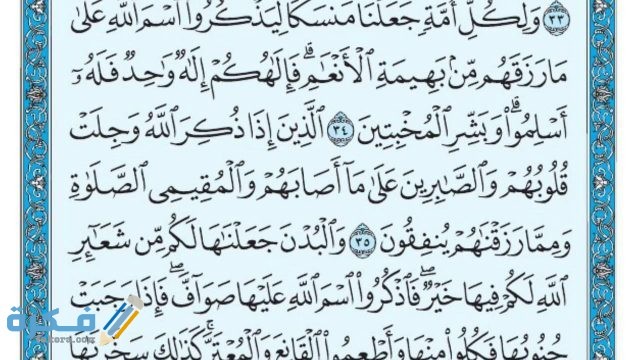 ﴿٣٣﴾ وَلِكُلِّ أُمَّةٍ جَعَلْنَا مَنسَكًا لِّيَذْكُرُوا۟ ٱسْمَ ٱللَّهِ عَلَىٰ
مَا رَزَقَهُم مِّنۢ بَهِيمَةِ ٱلْأَنْعَٰمِ ۗ فَإِلَٰهُكُمْ إِلَٰهٌ وَٰحِدٌ فَلَهُۥٓ
أَسْلِمُوا۟ ۗ وَبَشِّرِ ٱلْمُخْبِتِينَ ﴿٣٤﴾ ٱلَّذِينَ إِذَا ذُكِرَ ٱللَّهُ وَجِلَتْ
قُلُوبُهُمْ وَٱلصَّٰبِرِينَ عَلَىٰ مَآ أَصَابَهُمْ وَٱلْمُقِيمِى ٱلصَّلَوٰةِ
وَمِمَّا رَزَقْنَٰهُمْ يُنفِقُونَ ﴿٣٥﴾ وَٱلْبُدْنَ جَعَلْنَٰهَا لَكُم مِّن شَعَٰٓئِرِ
ٱللَّهِ لَكُمْ فِيهَا خَيْرٌ ۖ فَٱذْكُرُوا۟ ٱسْمَ ٱللَّهِ عَلَيْهَا صَوَآفَّ ۖ فَإِذَا وَجَبَتْ
جُنُوبُهَا فَكُلُوا۟ مِنْهَا وَأَطْعِمُوا۟ ٱلْقَانِعَ وَٱلْمُعْتَرَّ ۚ كَذَٰلِكَ سَخَّرْنَٰهَا
فكرة